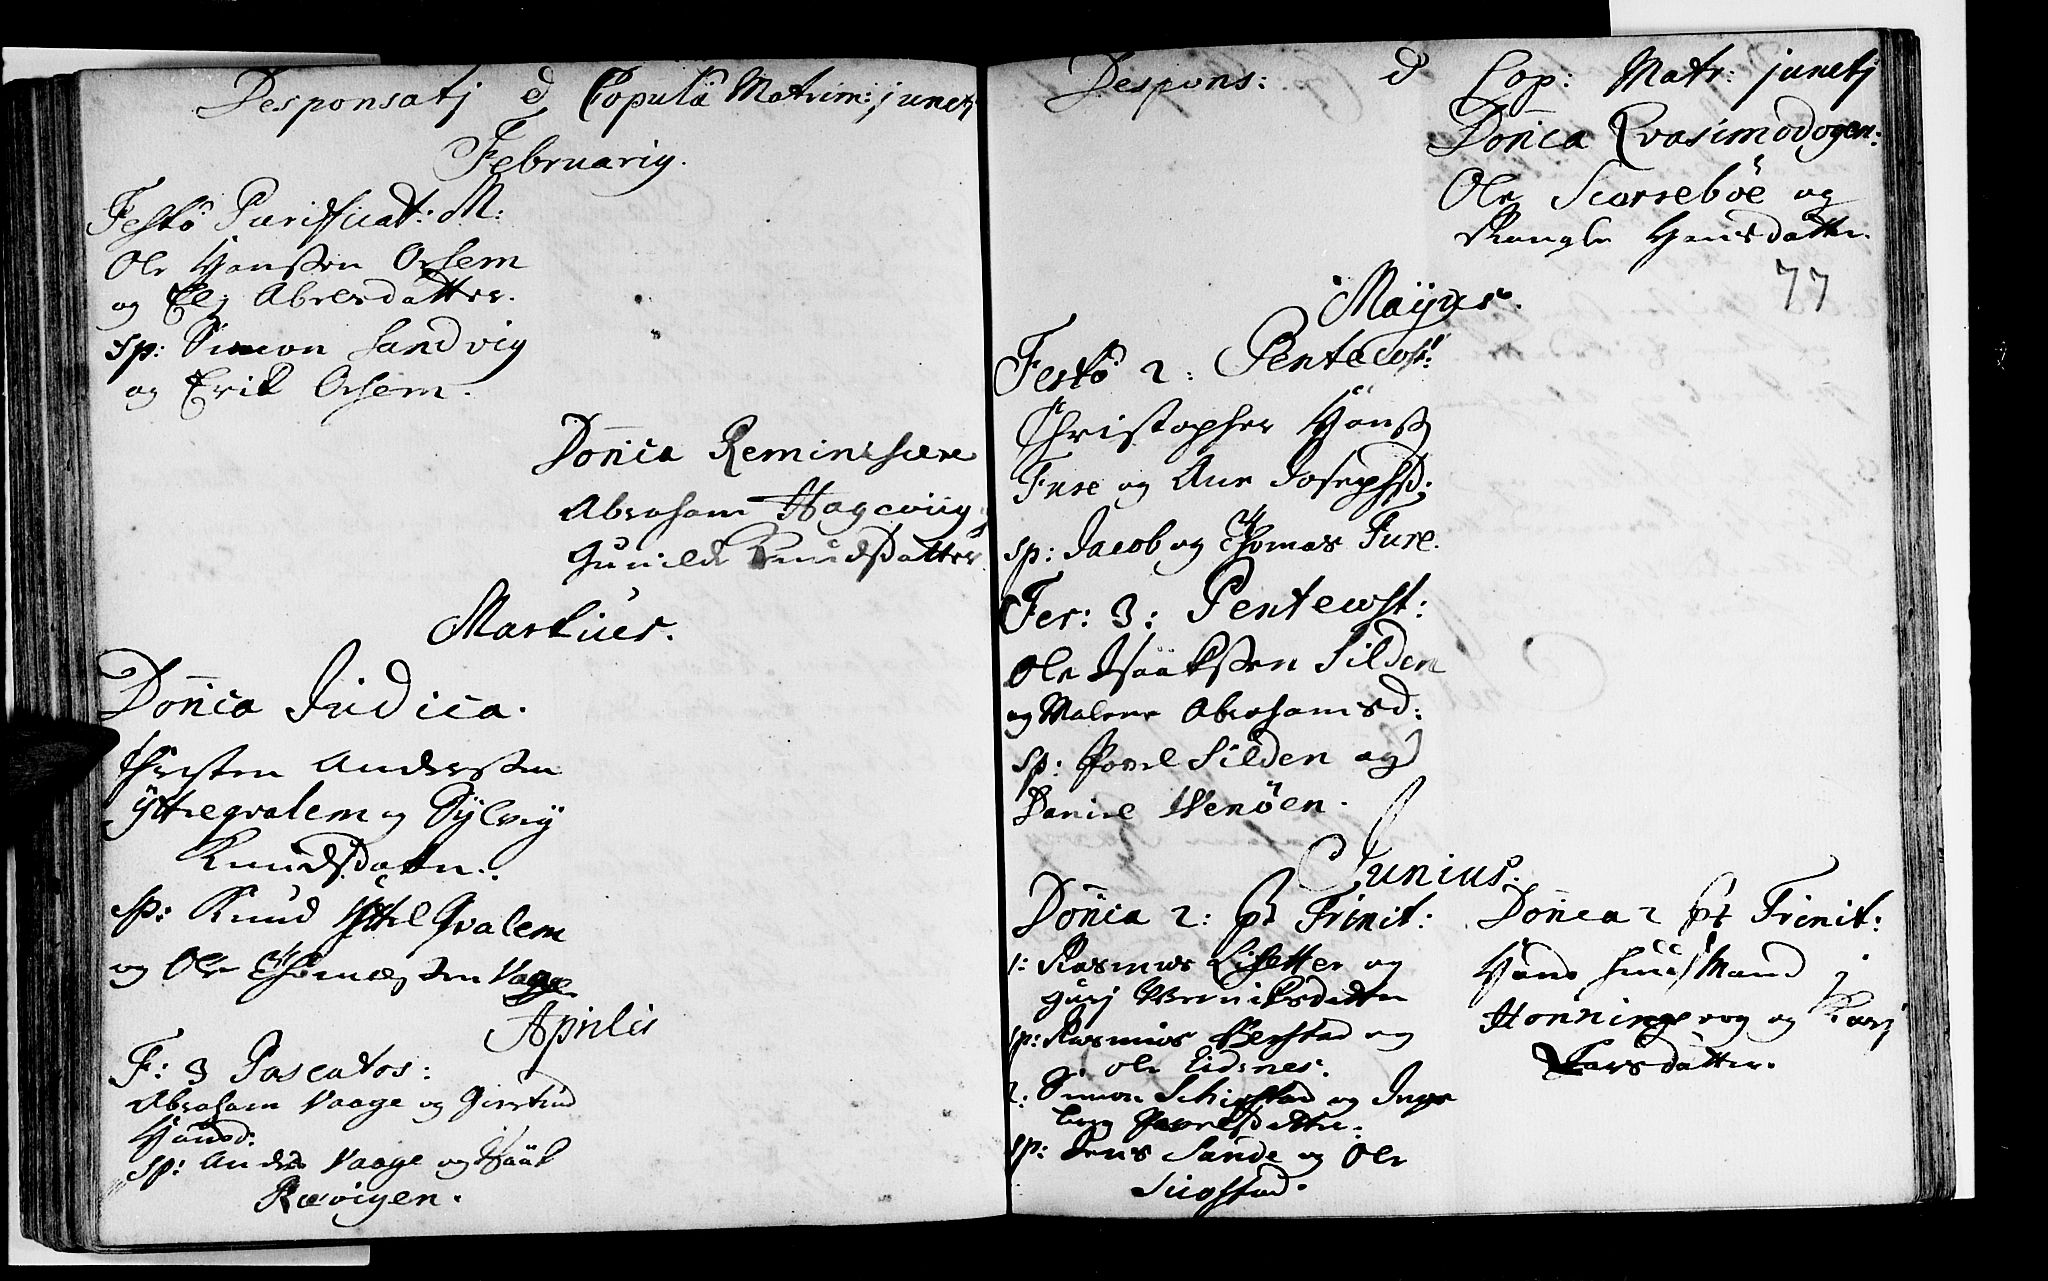 Desponsatj & Copulâ Matrim: junctj
Februarij.
Festô Purificat: M:
Ole Hanssen Orhem
og Elj Abrahdatter.
sp: Simon Sandvig
og Erik Orhem.
Dom̄ica Reminiscere
Abraham Hageviig
Gunild Knudsdatter
Martius.
Dom̄ica Judica.
Christen Anderssen
Yttreqvalem og Sÿlvej
Knudsdatter.
sp: Knud Yttre Qvalem
og Ole Thomæssen Vaage
Aprilis
F: 3 Pascatos:
Abraham Vaage og Giertrud
Hansd:
sp: Anders Vaage og Isaäk
Rævigen.
Despons: & Cop: Matr: junctj
Dom̄ica Qvasimodogen:
Ole Scorrebøe og
Rangle Hansdatter.
77
Maÿus.
Festô 2: Pentecost:
Christopher Hanss
Fure og Ane Josephsd:
sp: Jacob og Thomas Fure.
Fer: 3: Pentecost:
Ole Isaäkssen Silden
og Malene Abrahamsd:
sp: Povel Silden og
Daniel Venøen.
Junius.
Dom̄ica 2: pt Trinit:
1: Rasmus Lisetter og
Gurj Verniksdatter
sp: Rasmus Berstad og
Ole Eidsnes.
2: Simon Schigstad og Inge
borg Povelsdatter.
sp: Jens Sande og Ole
Sugstad.
Dom̄ica 2 pt Trinit:
Hans Huusmand j
Honningsvog og Karj
Larsdatter.